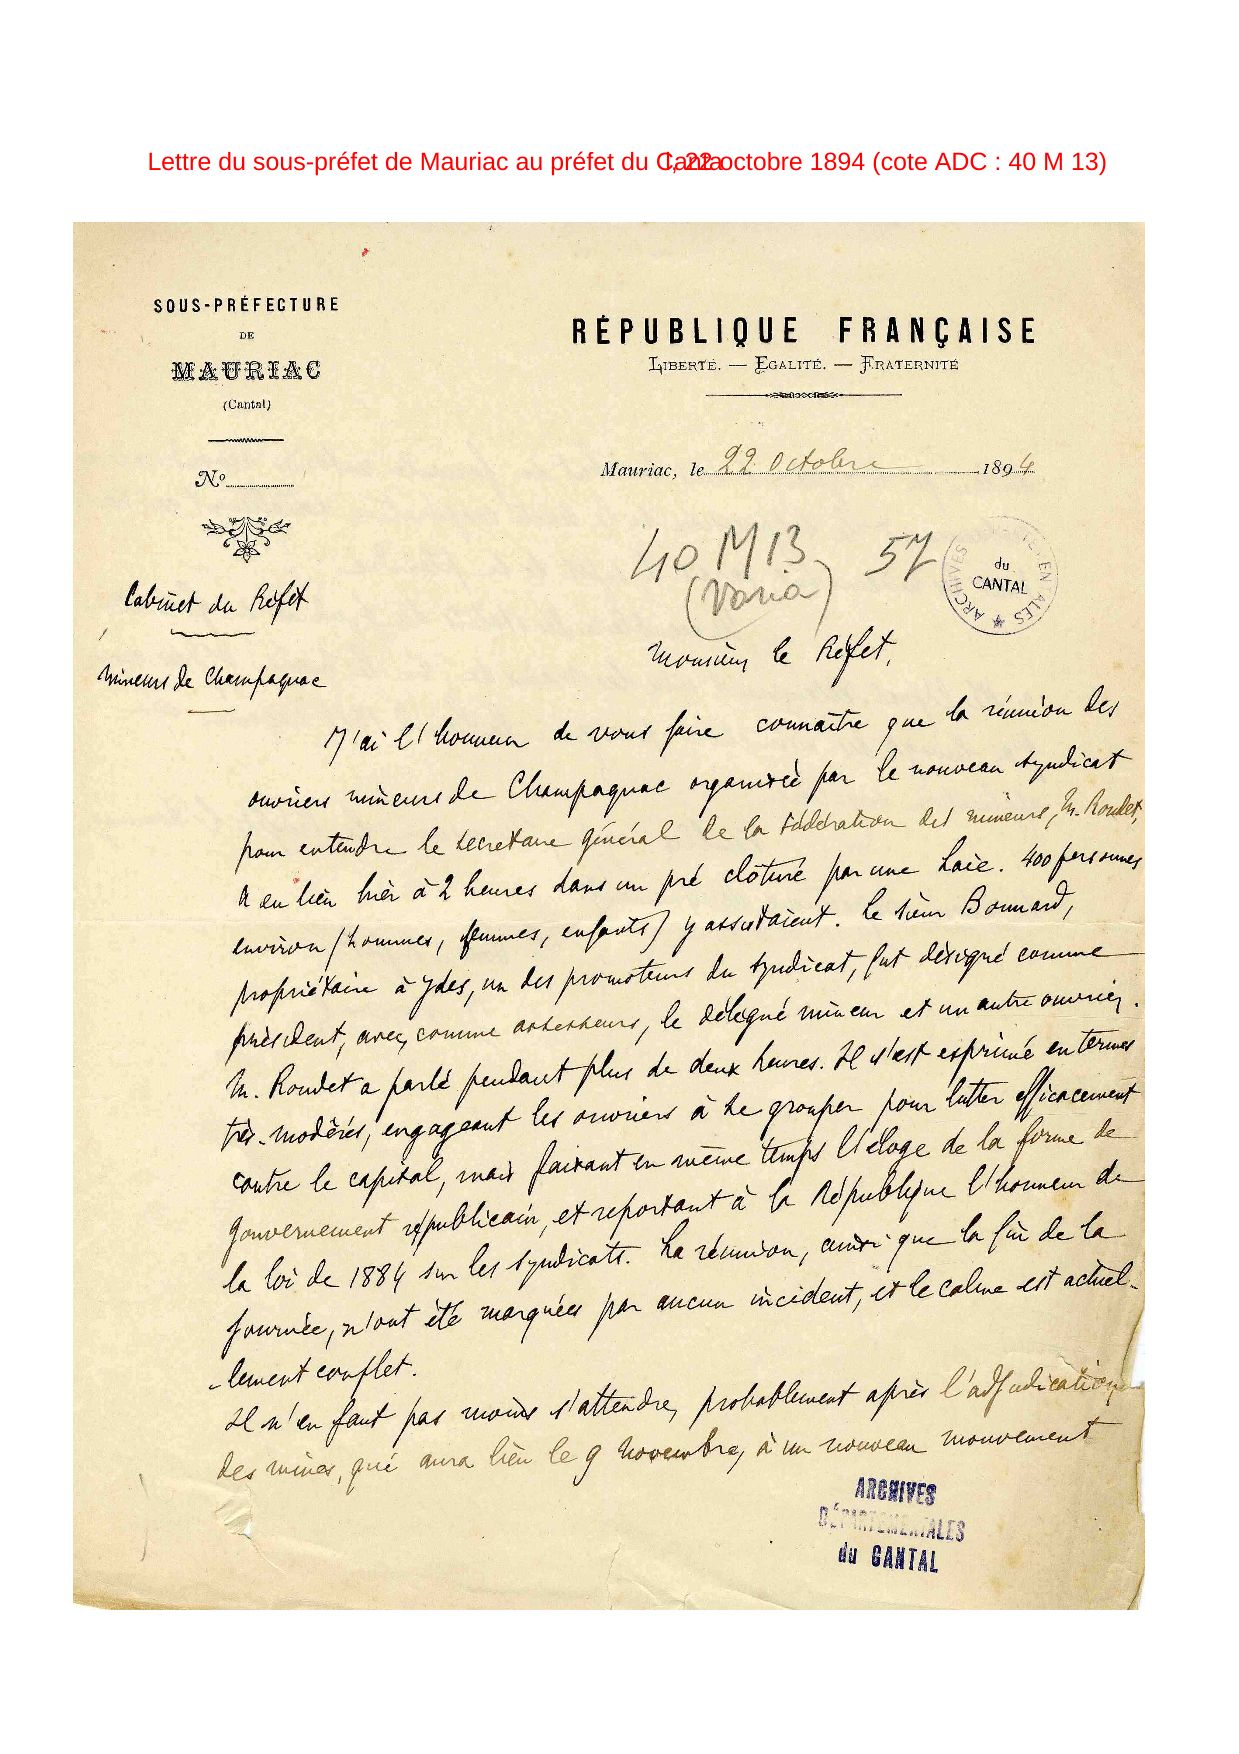 Lettre du sous-préfet de Mauriac au préfet du Cantal, 22 octobre 1894 (cote ADC : 40 M 13)
SOUS-PRÉFECTURE
DE
MAURIAC
(Cantal)
No
RÉPUBLIQUE FRANÇAISE
LIBERTÉ. — EGALITÉ. — FRATERNITÉ
Mauriac, le 22 Octobre 1894
40 M 13 57
(Varia)
ARCHIVES
du
CANTAL
Cabinet du Préfet
Mineurs de Champagnac
Monsieur le Préfet,
J'ai l'honneur de vous faire connaître que la réunion des
ouvriers mineurs de Champagnac organisée par le nouveau syndicat
pour entendre le secrétaire général de la Fédération des mineurs, M. Roudet,
a eu lieu hier à 2 heures dans un pré clôturé par une haie. 400 personnes
environ (hommes, femmes, enfants) y assistaient. Le sieur Bonnard,
propriétaire à Ydes, un des promoteurs du syndicat, fut désigné comme
président, avec, comme assesseurs, le délégué mineur et un autre ouvrier.
M. Roudet a parlé pendant plus de deux heures. Il s'est exprimé en termes
très-modérés, engageant les ouvriers à se grouper pour lutter efficacement
contre le capital, mais faisant en même temps l'éloge de la forme de
gouvernement républicain, et reportant à la République l'honneur de
la loi de 1884 sur les syndicats. La réunion, ainsi que la fin de la
journée, n'ont été marquées par aucun incident, et le calme est actuel-
-lement complet.
Il n'en faut pas moins s'attendre, probablement après l'adjudication
des mines, qui aura lieu le 9 Novembre, à un nouveau mouvement
ARCHIVES
DÉPARTEMENTALES
du CANTAL